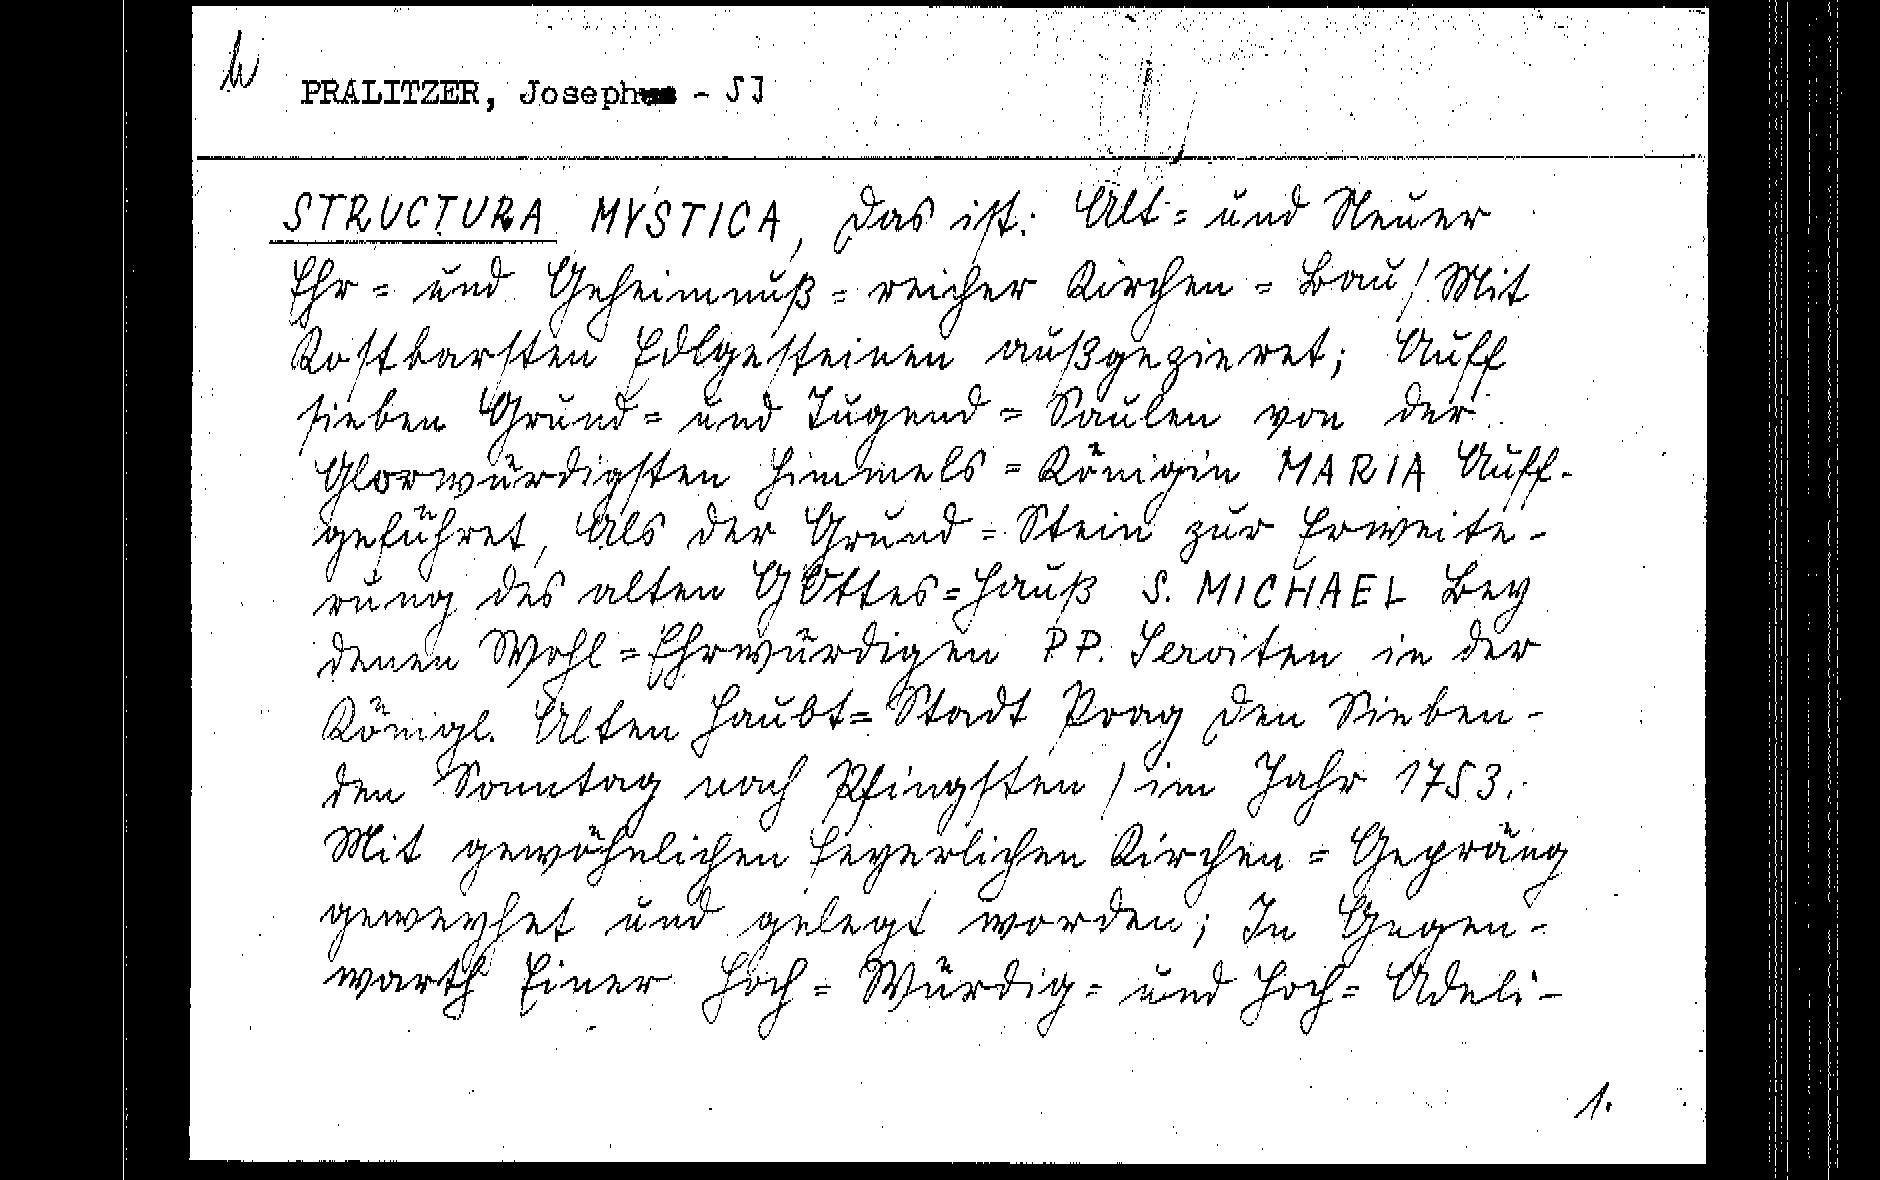 PRALITZER, Joseph - SJ
STRUCTURA MYSTICA, Das ist: Alt= und Neuer
Ehr= und Geheimnuß=reicher Kirchen=Bau / Mit
Kostbarsten Edlgesteinen außgezieret; Auff
sieben Grund= und Tugend=Saulen von der
Glorwürdigsten Himmels=Königin MARIA Auff-
geführet, Als der Grund=Stein zur Erweite-
rung des alten GOttes=Hauß S. MICHAEL Bey
denen Wohl=Ehrwürdigen P.P. Serviten in der
Königl. Alten Haubt=Stadt Prag Den Sieben-
den Sonntag nach Pfingsten / im Jahr 1753.
Mit gewöhnlichen feyerlichen Kirchen=Gepräng
geweyhet und gelegt worden; In Gegen-
warth Einer Hoch=Würdig= und Hoch=Adeli-
1.